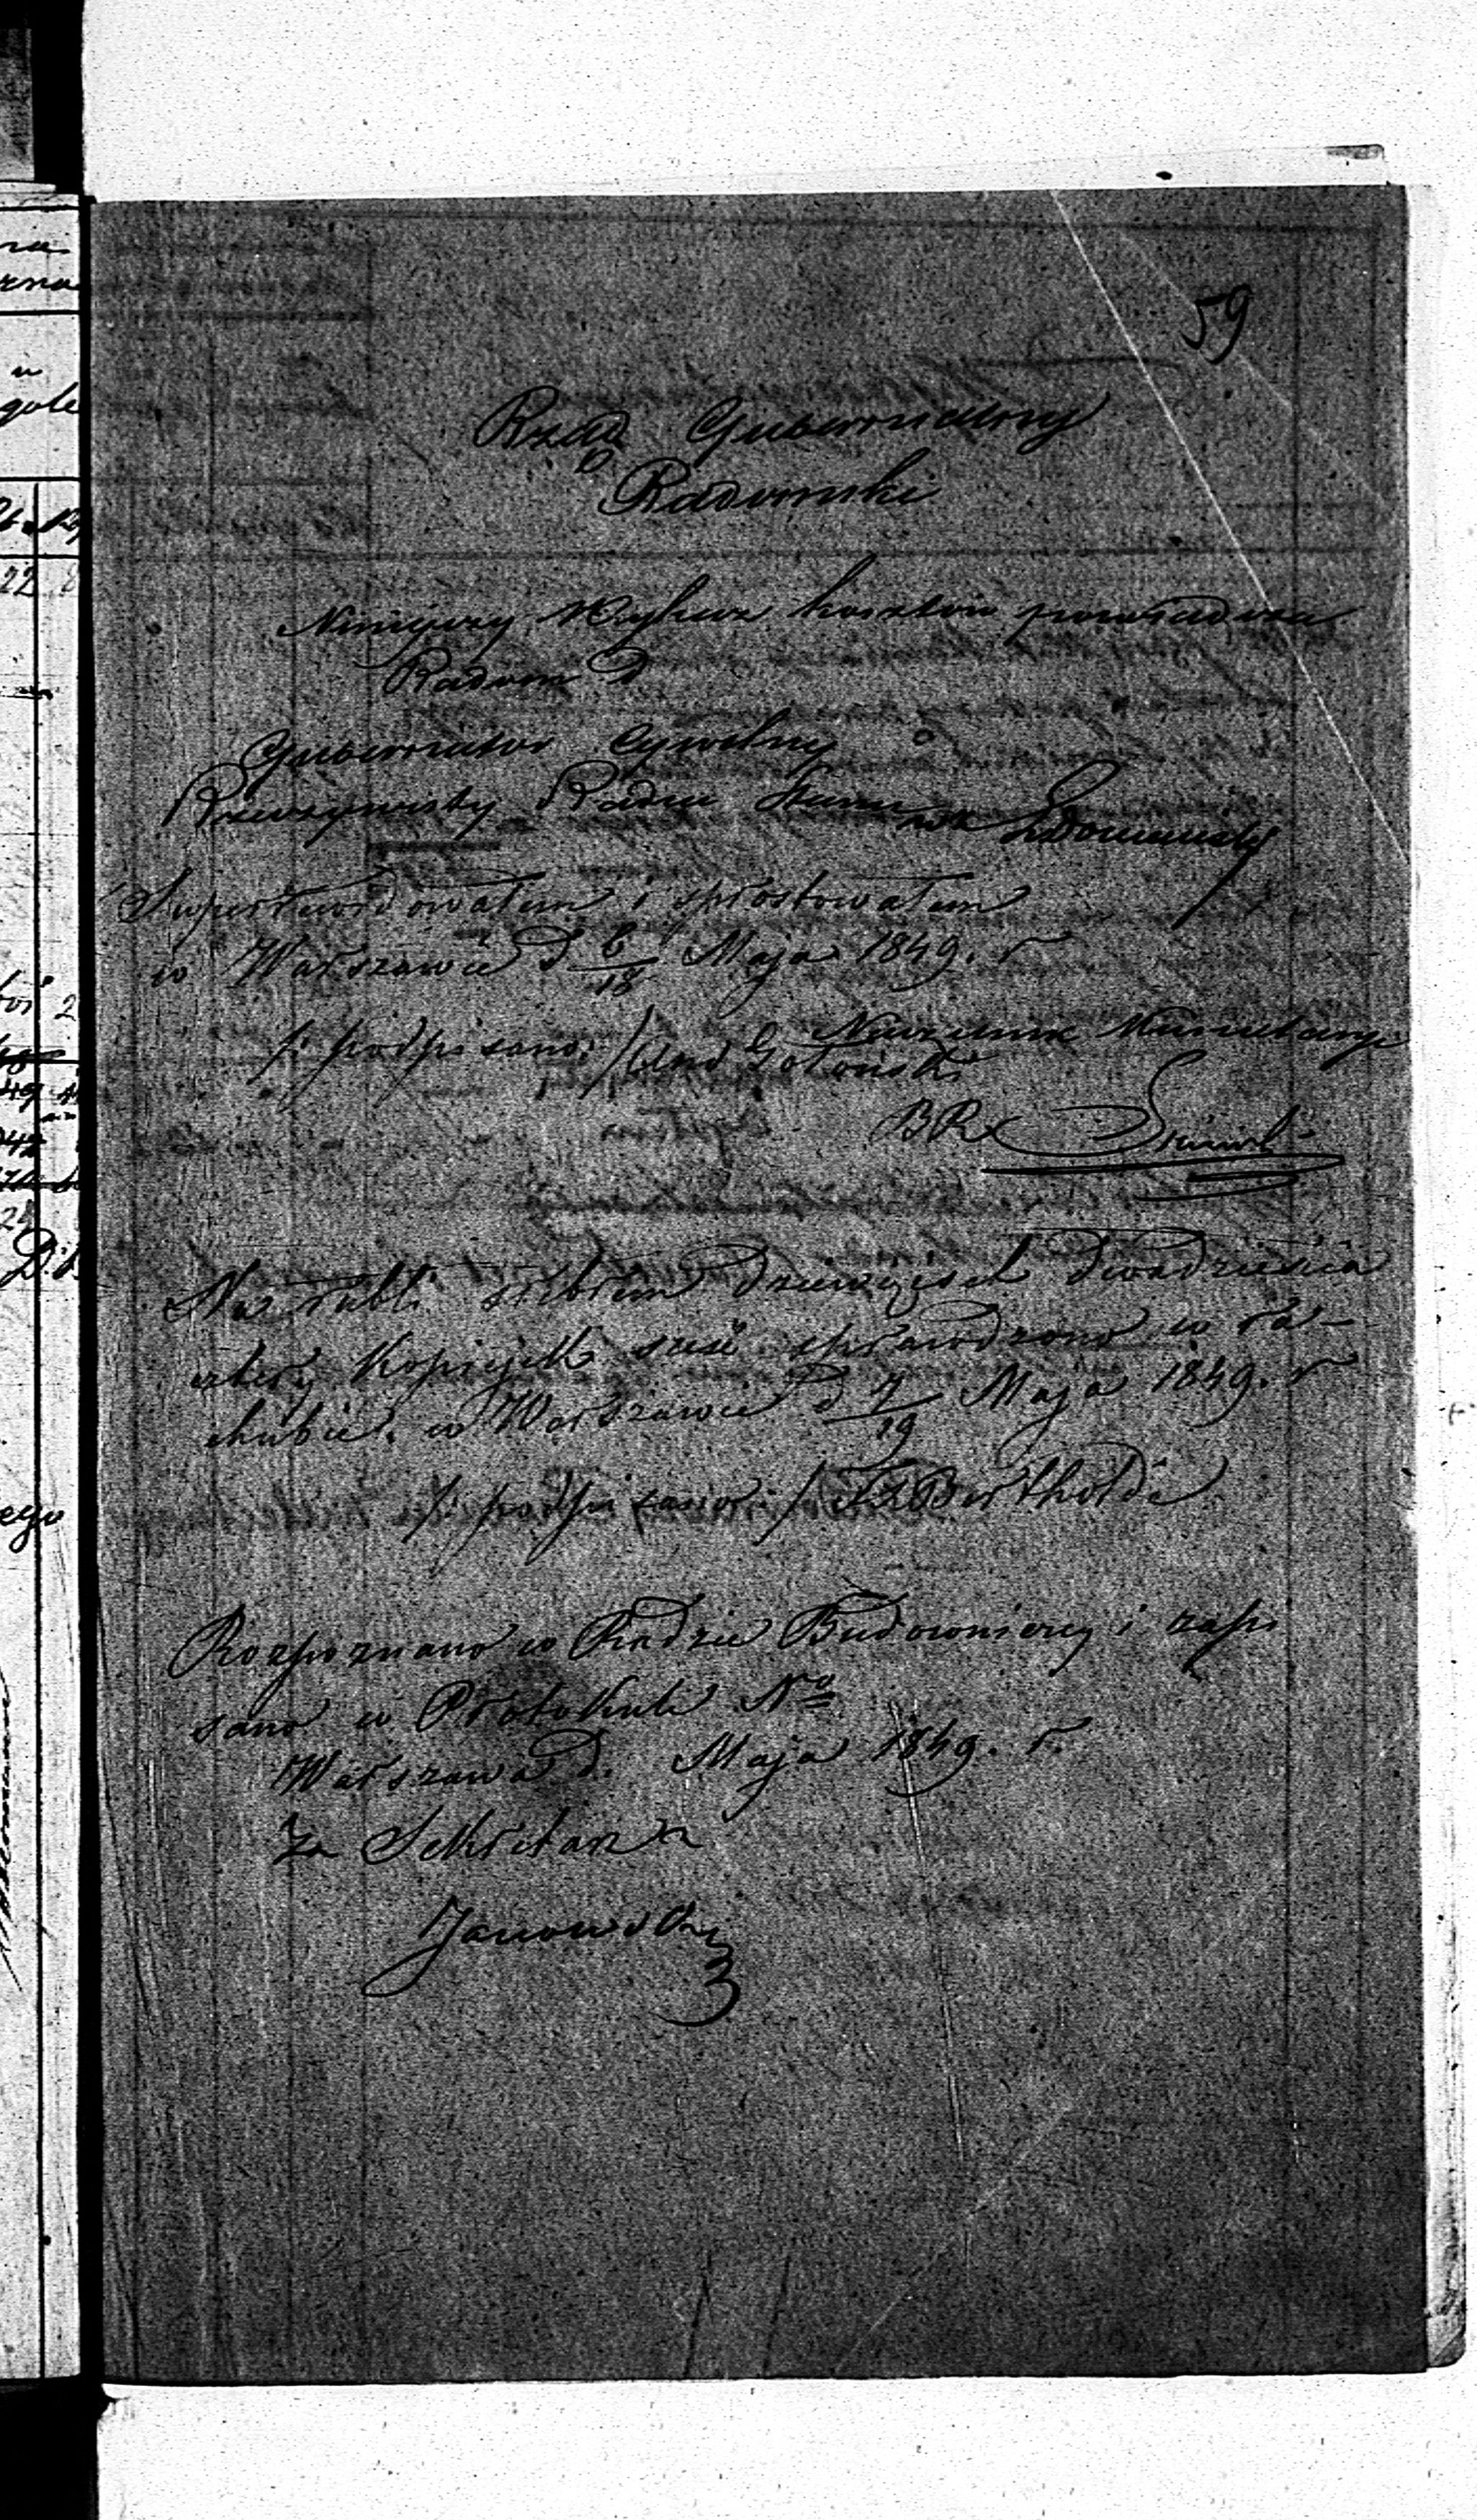 59
Rząd Gubernialny
Radomski
Niniejszy Wykaz kosztów poświadcza
Radom d
Gubernator Cywilny
Rzeczywisty Radca Stanu
Superrewidowałem i sprostowałem
w Warszawie d 6/18 Maja 1849. r
/: podpisano: /
Naczelnik
BR
Na rubli srebrem dziewięćset dwadzieścia
cztery kopiejek sześć sprawdzono w ra-
chubie. w Warszawie d 7/19 Maja 1849. r
/: podpisano: / Bertholdi
Rozpoznano w Radzie Budowniczej i zapi
sano w Protokule No
Warszawa d. Maja 1849. r.
Za Sekretarza
Janowski